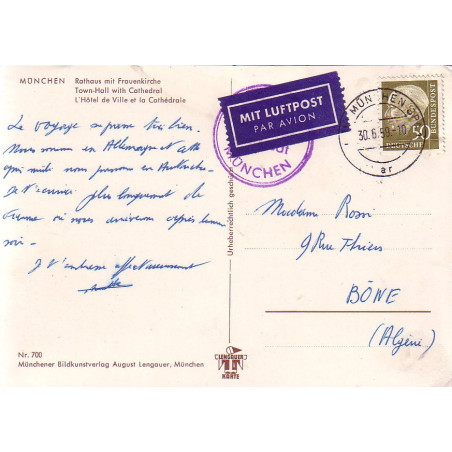 MÜNCHEN Rathaus mit Frauenkirche
Town-Hall with Cathedral
L'Hôtel de Ville et la Cathédrale
Le voyage se passe très bien.
Nous sommes en Allemagne et cette
après midi nous passons en Autriche.
Je t'écrirai plus longuement de
où nous arriverons après demain
soir.
Je t'embrasse affectueusement
Nr. 700
Münchener Bildkunstverlag August Lengauer, München
Urheberrechtlich geschützt
LENGAUER
KARTE
MIT LUFTPOST
PAR AVION
MÜNCHEN
MÜNCHEN BP
30.6.59-10
ar
50
DEUTSCHE BUNDESPOST
Madame Rossi
9 Rue Thiers
BÔNE
(Algérie)